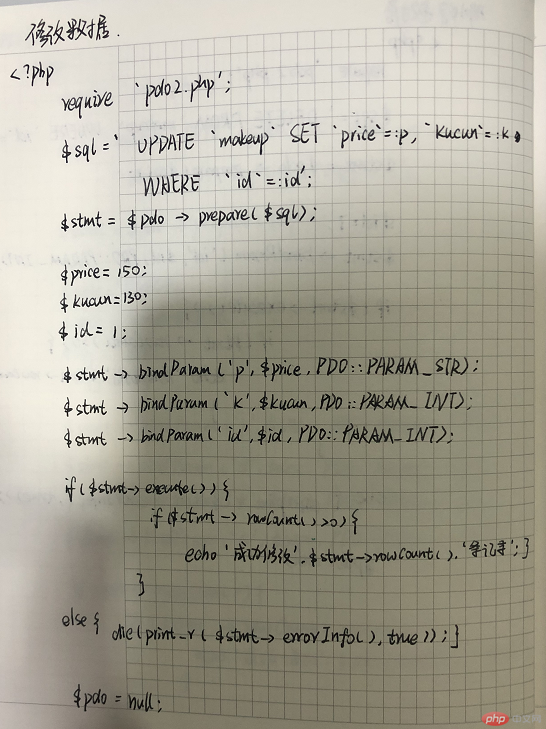 修改数据.
<?php
require 'pdo2.php';
$sql=' UPDATE `makeup` SET `price`=:p, `kucun`=:k
WHERE `id`=:id';
$stmt = $pdo → prepare($sql);
$price= 150;
$kucun=130;
$id = 1;
$stmt → bindParam('p',$price,PDO::PARAM_STR);
$stmt → bindParam('k',$kucun,PDO::PARAM_INT);
$stmt → bindParam('id',$id,PDO::PARAM_INT);
if($stmt→execute()){
if($stmt → rowCount()>0){
echo '成功修改'.$stmt→rowCount().'条记录';}
}
else {
die(print_r($stmt→errorInfo(),true));}
$pdo = null;
php 中文网